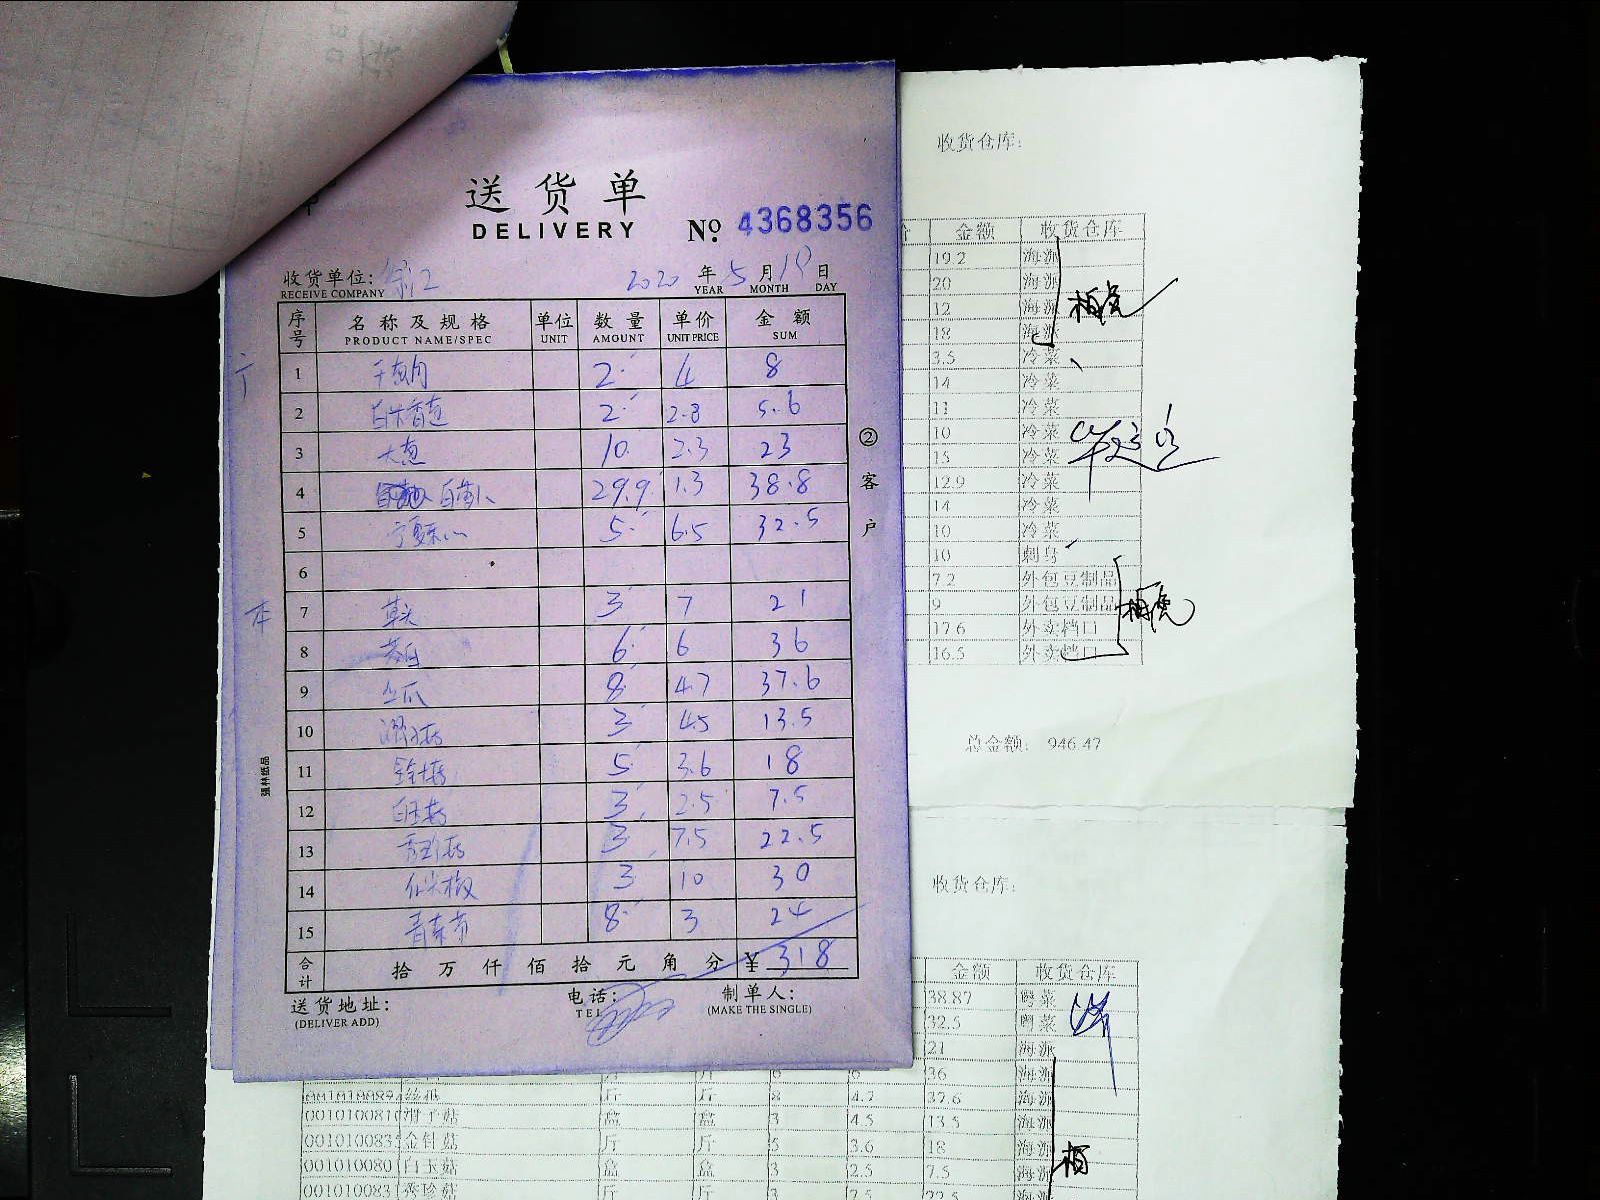 送货单
DELIVERY
№ 4368356
收货单位:
RECEIVE COMPANY
2020 年 5 月 19 日
YEAR MONTH DAY
序号 名称及规格 单位 数量 单价 金额
PRODUCT NAME/SPEC UNIT AMOUNT UNIT PRICE SUM
1 干葱肉 2 4 8
2 2 2.8 5.6
3 大葱 10 2.3 23
4 29.9 1.3 38.8
5 5 6.5 32.5
6
7 草头 3 7 21
8 6 6 36
9 丝瓜 8 4.7 37.6
10 滑子菇 3 4.5 13.5
11 金针菇 5 3.6 18
12 白玉菇 3 2.5 7.5
13 秀珍菇 3 7.5 22.5
14 3 10 30
15 8 3 24
合计 拾 万 仟 佰 拾 元 角 分 ¥ 318
送货地址:
(DELIVER ADD)
电话:
TEL
制单人:
(MAKE THE SINGLE)
②客户
强林纸品
收货仓库:
金额 收货仓库
19.2 海派
20 海派
12 海派
18 海派
3.5 冷菜
14 冷菜
11 冷菜
10 冷菜
15 冷菜
12.9 冷菜
14 冷菜
10 冷菜
10 刺身
7.2 外包豆制品
9 外包豆制品
17.6 外卖档口
16.5 外卖档口
总金额: 946.47
收货仓库:
金额 收货仓库
38.87 粤菜
32.5 粤菜
21 海派
斤 斤 6 6 36 海派
丝瓜 斤 斤 8 4.7 37.6 海派
滑子菇 盒 盒 3 4.5 13.5 海派
金针菇 斤 斤 5 3.6 18 海派
白玉菇 盒 盒 3 2.5 7.5 海派
秀珍菇 斤 斤 3 7.5 22.5 海派